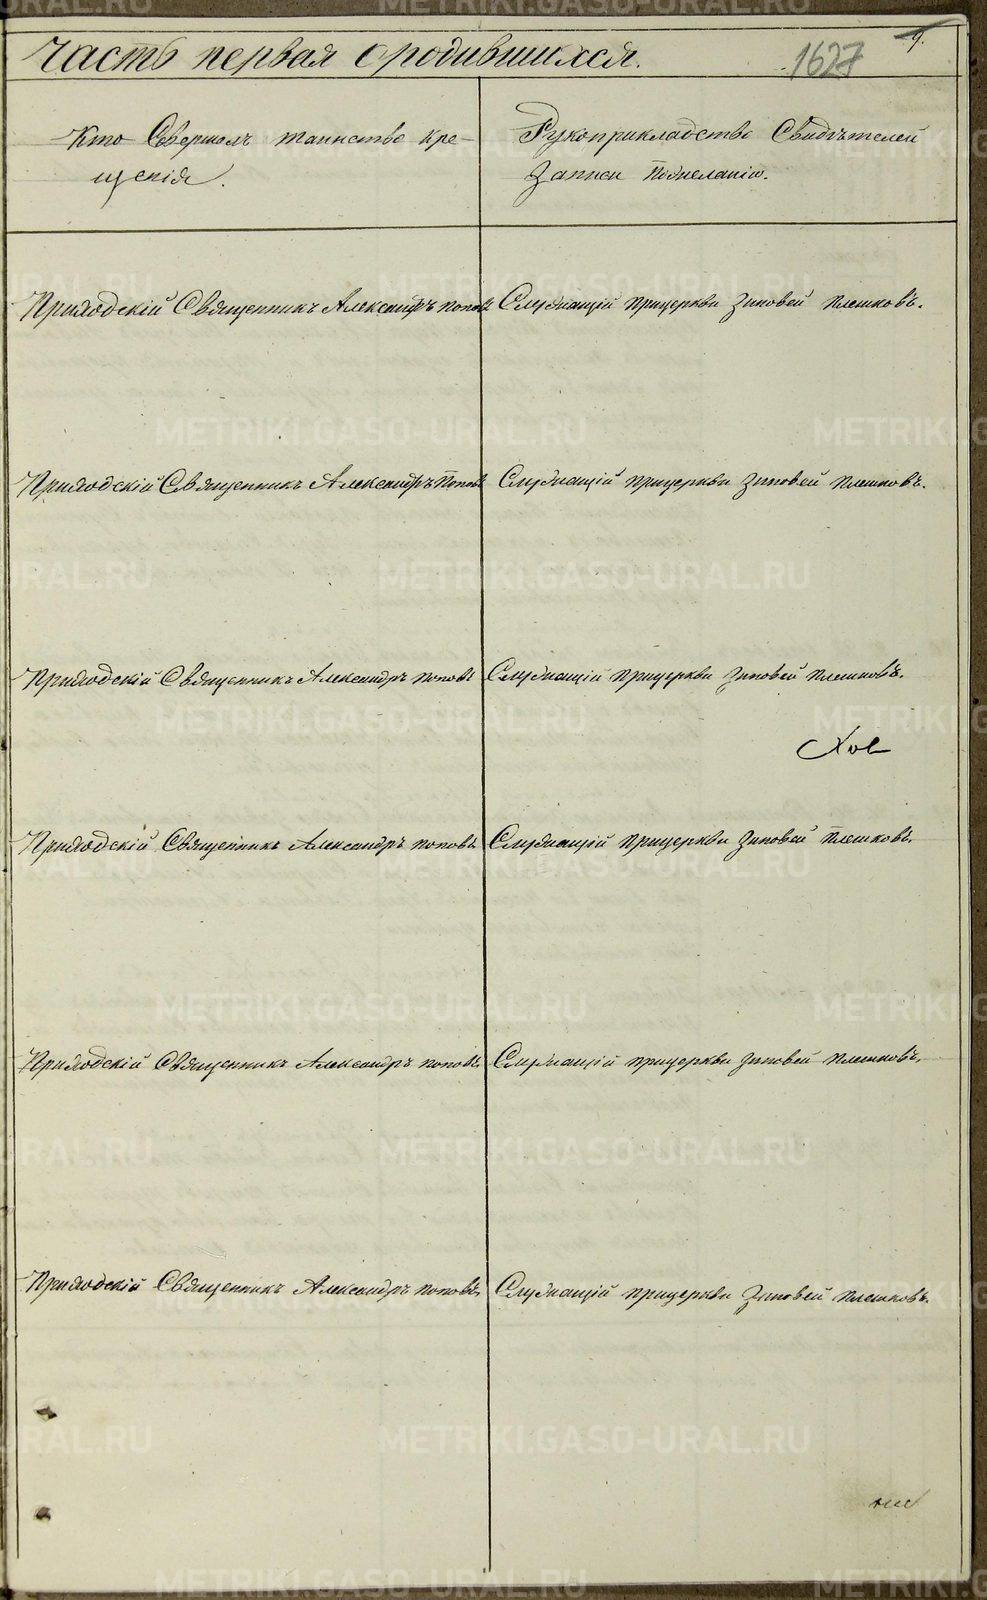 часть первая о родившихся.
1627
9.
Кто Совершалъ таинство кре-
щенія.
Рукоприкладство Свидѣтелей
Записи По желанію.
Приходскій Священникъ Александръ попов Служащій прицеркви Зиновей плешковъ.
Приходскій Священникъ Александръ Попов Служащій прицеркви Зиновей плешковъ.
Приходскій Священникъ Александръ поповъ Служащій прицеркви Зиновей плешковъ.
Приходскій Священникъ Александръ поповъ Служащій прицеркви Зиновей плешковъ.
Приходскій Священникъ Александръ поповъ Служащій прицеркви Зиновей плешковъ.
Приходскій Священникъ Александръ поповъ. Служащій прицеркви Зиновей плешковъ.
METRIKI.GASO-URAL.RU